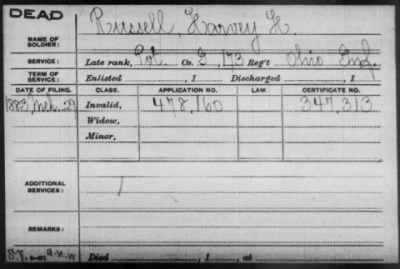 DEAD
NAME OF SOLDIER: Russell, Harvey H.
SERVICE: Late rank, Pvt. Co. E, 173 Reg't Ohio Inf.
TERM OF SERVICE: Enlisted , 1 Discharged , 1
DATE OF FILING. CLASS. APPLICATION NO. LAW. CERTIFICATE NO.
1883 Mch. 29 Invalid, 478,160 347,313
Widow,
Minor,
ADDITIONAL SERVICES:
REMARKS:
Died , 1 , at